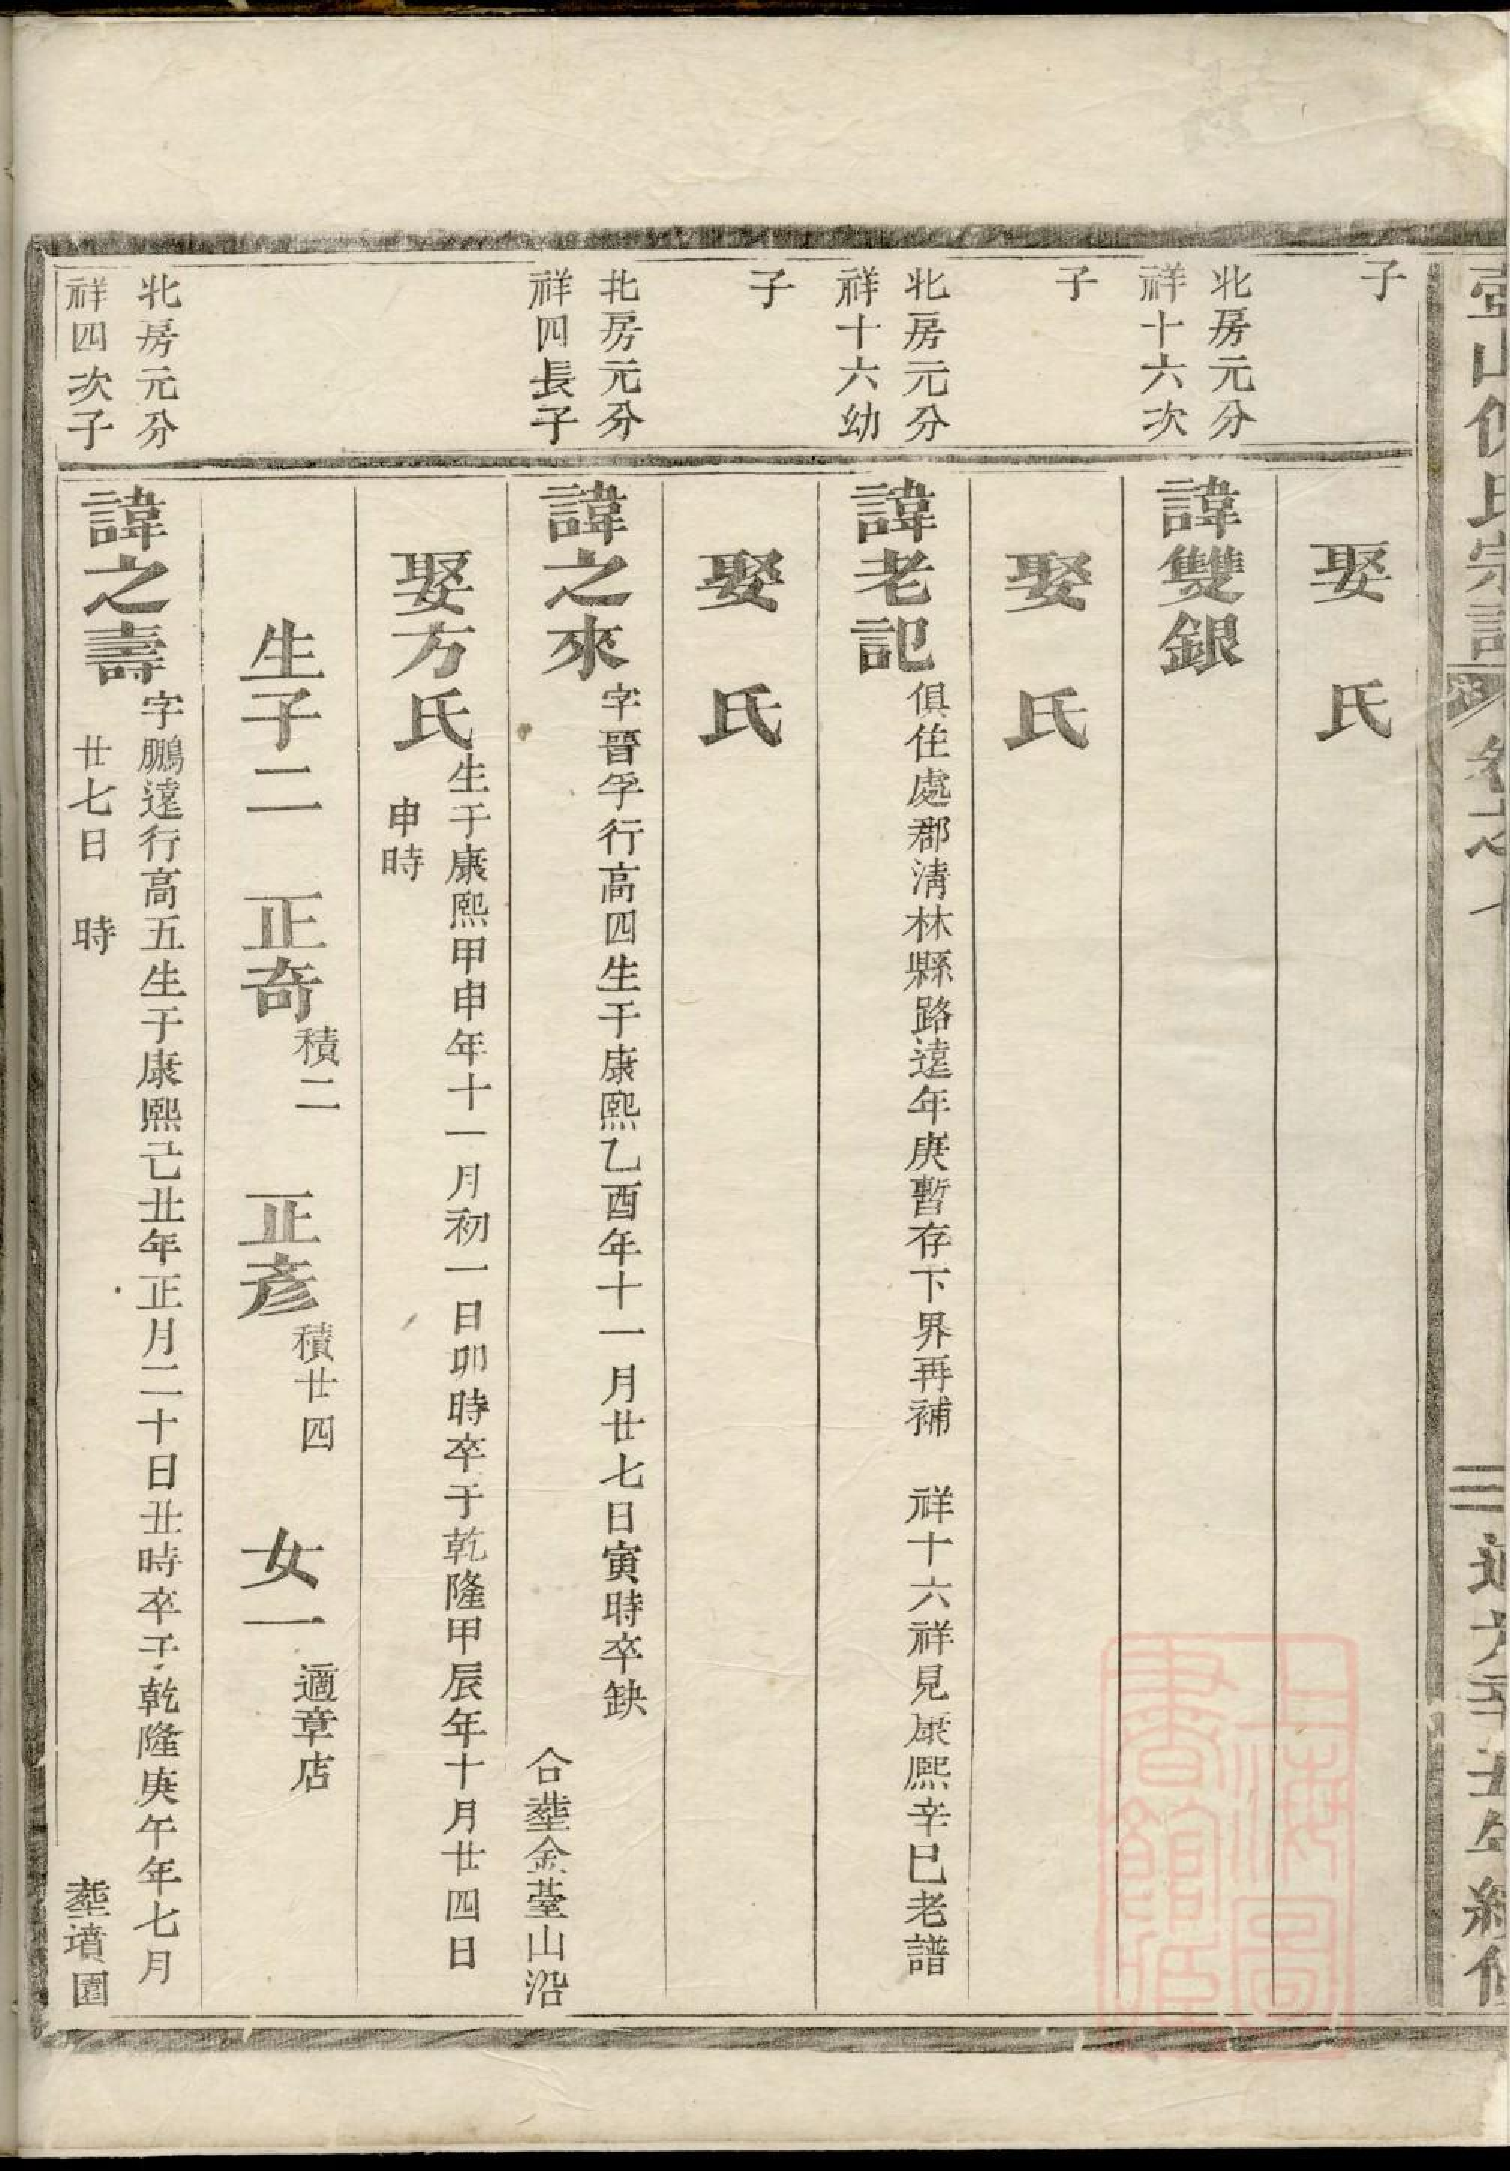 子
娶 氏
北房元分
祥十六次
諱雙銀
子
娶 氏
北房元分
祥十六幼
諱老記
俱住處郡清林縣路遠年庚暫存下界再補 祥十六祥見康熙辛巳老譜
子
娶 氏
北房元分
祥四長子
諱之來
字晉孚行高四生于康熙乙酉年十一月廿七日寅時卒缺
合塟金䑓山沿
娶方氏
生于康熙甲申年十一月初一日卯時卒于乾隆甲辰年十月廿四日
申時
生子二 正奇 積二 正彥 積廿四 女一 適章店
北房元分
祥四次子
諱之壽
字鵬遠行高五生于康熙己丑年正月二十日丑時卒于乾隆庚午年七月
廿七日 時 塟墳園
上海圖
書館藏